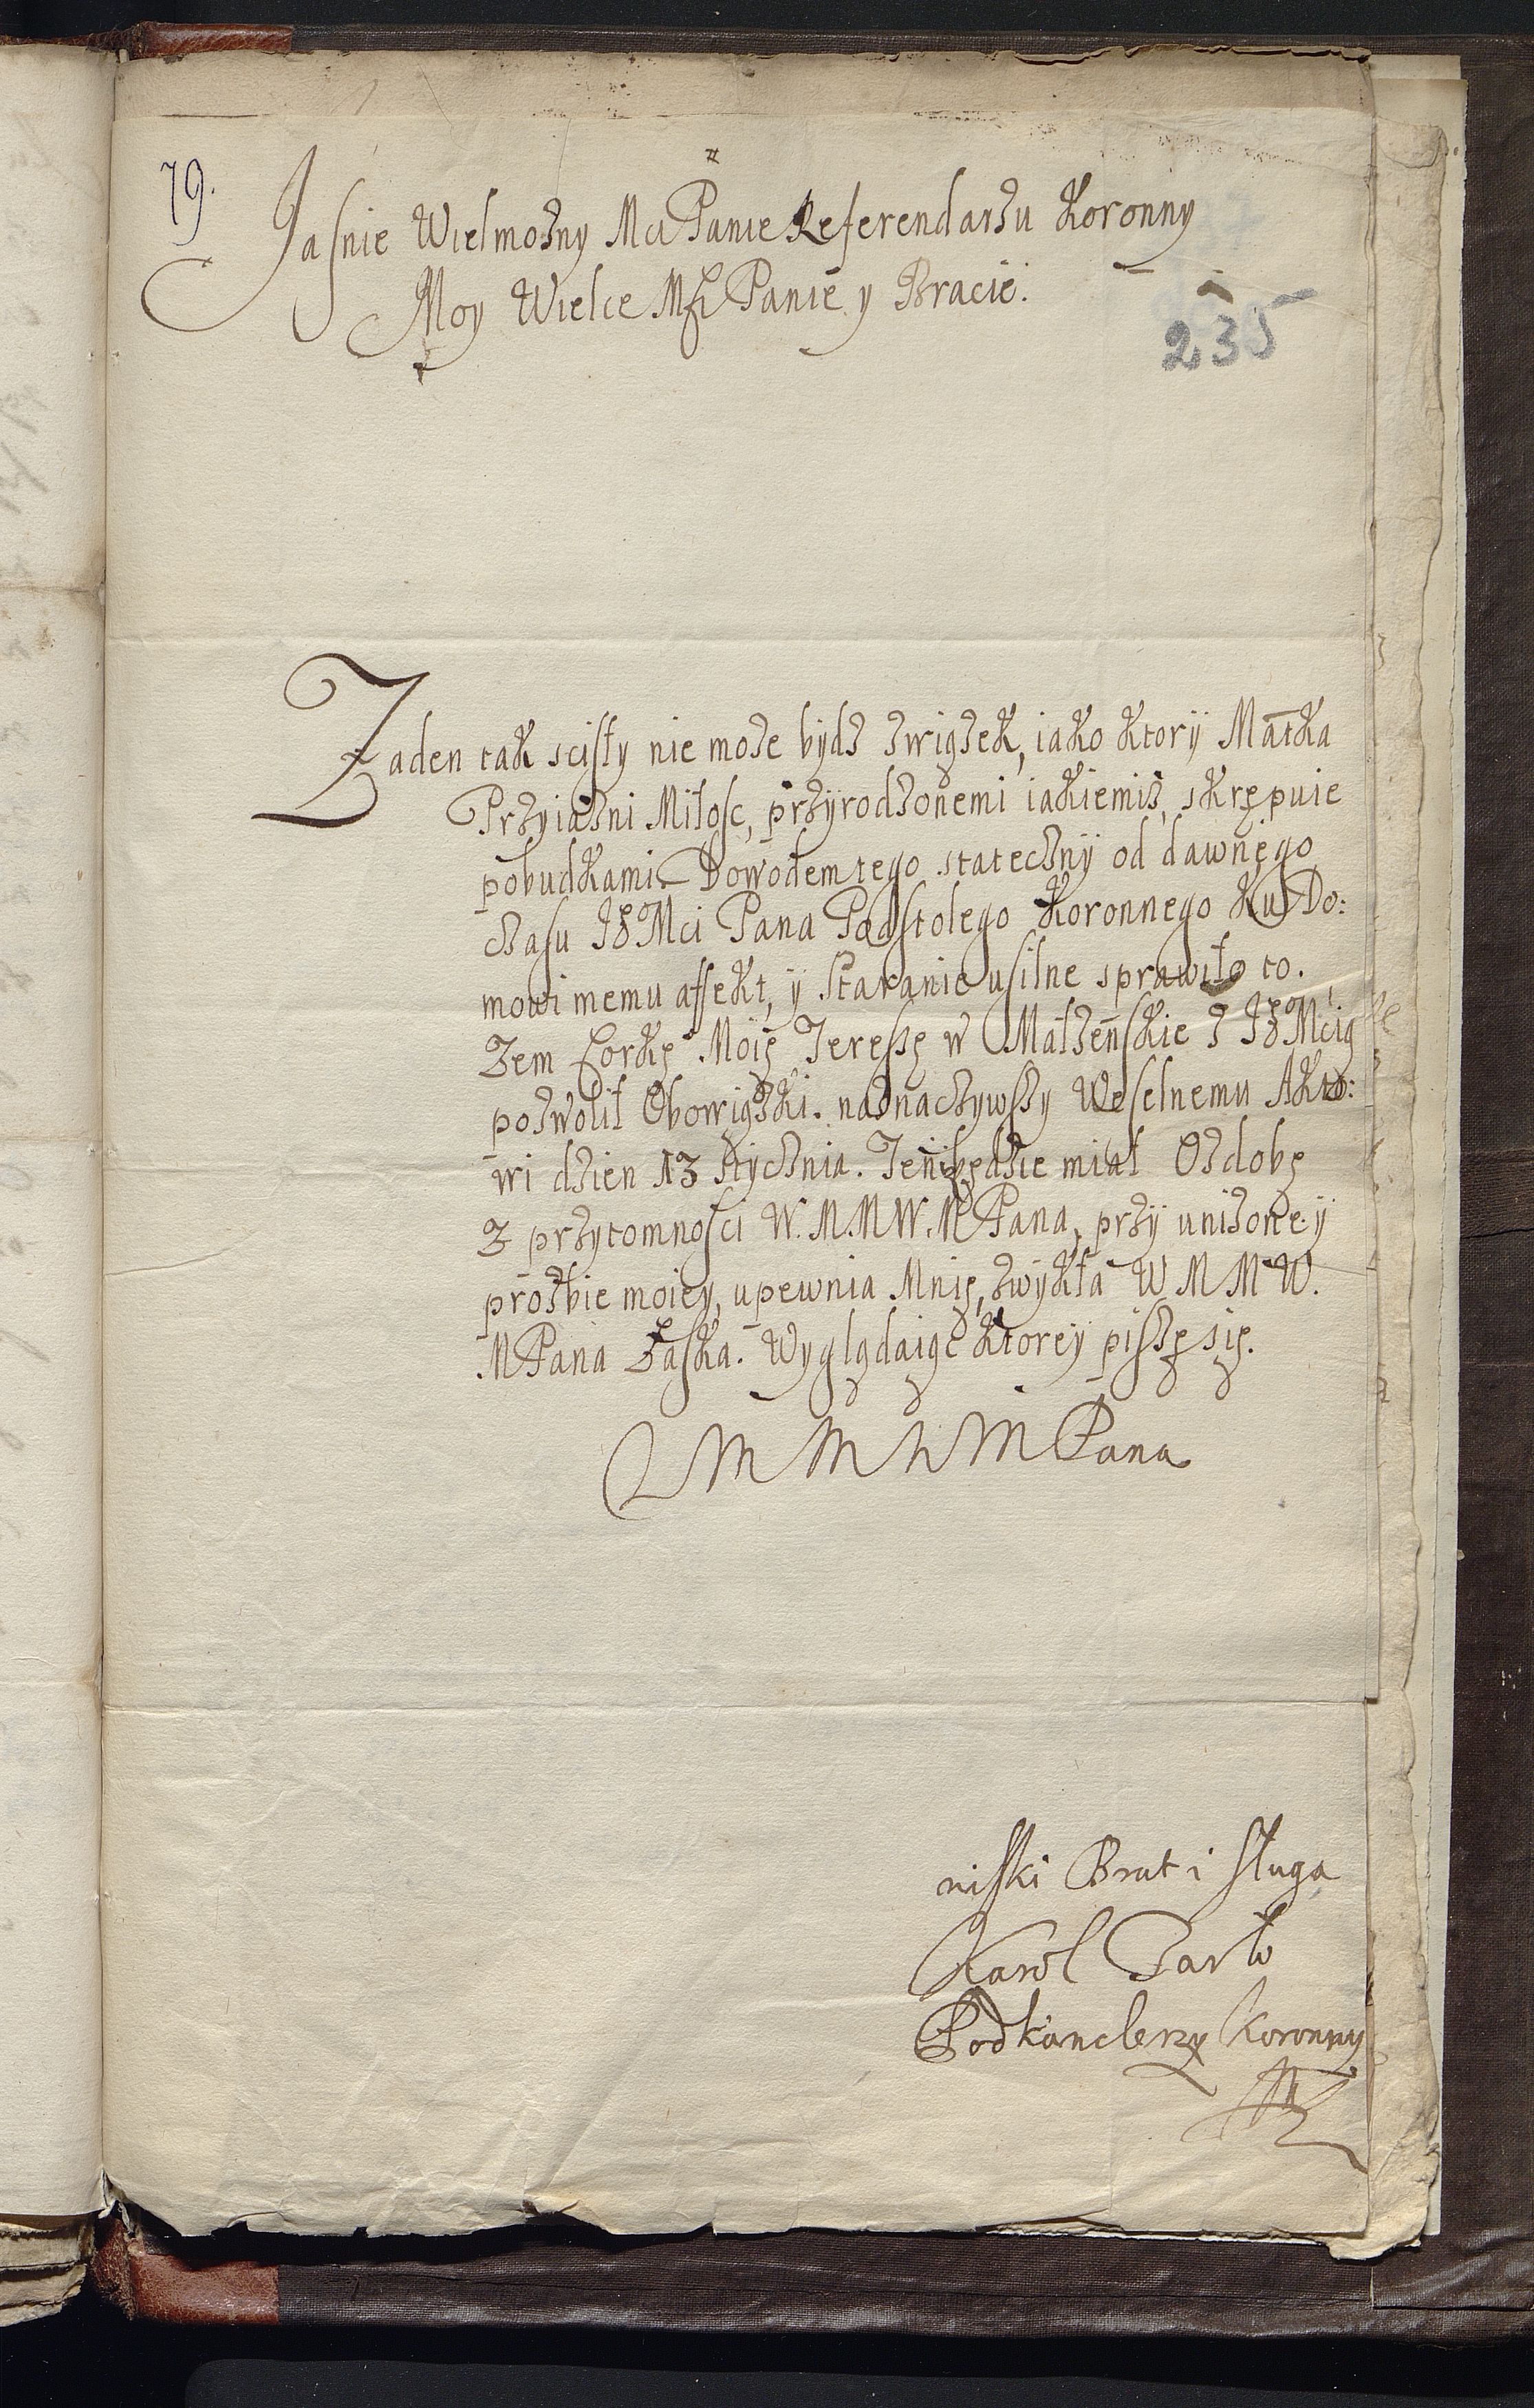 79.
Jasnie Wielmozny Mci Panie Referendarzu Koronny
Moy Wielce Mci Panie y Bracie.
235
Zaden tak scisły nie moze bydz związek, iako ktory Matka
Przyiazni Miłosc, przyrodzonemi iakiemis, skrępuie
pobudkami. Dowodem tego stateczny od dawnego
czasu JE Mci Pana Podstolego Koronnego ku Do:
mowi memu affekt, y staranie usilne sprawiło to.
Zem Corkę Moię Teressę w Małzenskie z JE Mcią
pozwolił Obowiązki. naznaczywszy Weselnemu Akto:
wi dzien 13 Stycznia. Ten ze będzie miał Ozdobę
z przytomnosci W.M.M.W.M Pana, przy unizoney
prozbie moiey, upewnia Mnię, zwykła W M M W.
M Pana Łaska. Wyglądaiąc ktorey piszę się.
W M M W M Pana
niski Brat i sługa
Karol Tarło
Podkanclerzy Koronny